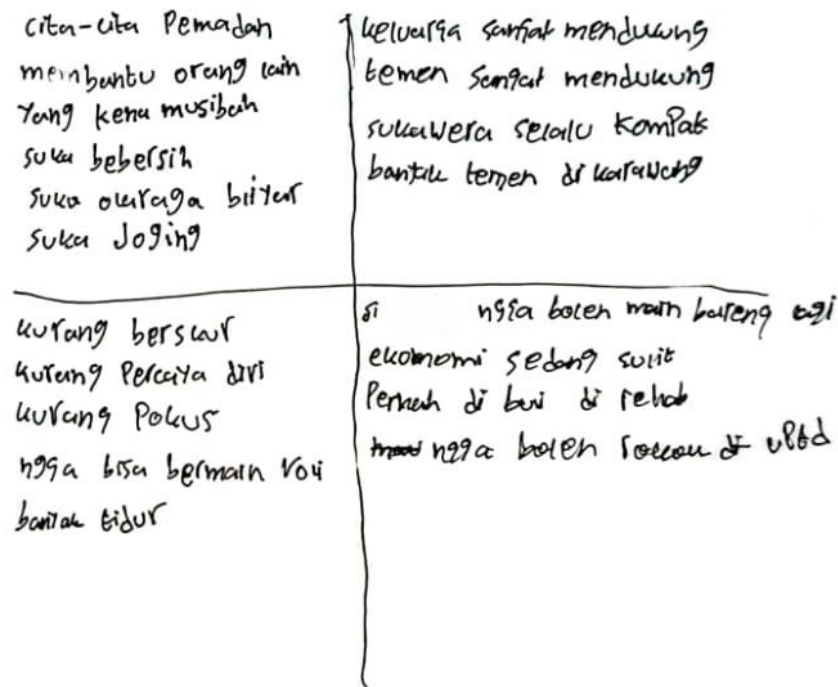 cita-cita Pemadan
membantu orang lain
yang kena musibah
suka bebersih
suka olaraga
suka Joging
keluarga sangat mendukung
temen sangat mendukung
sukawera selalu KomPak
bantak temen di karawang
kurang berskur
kurang Percaya diri
kurang Pokus
ngga bisa bermain voli
bantak tidur
ngga boleh main bareng lagi
ekonomi sedang sulit
Pernah di bui di rehab
ngga boleh rokou di